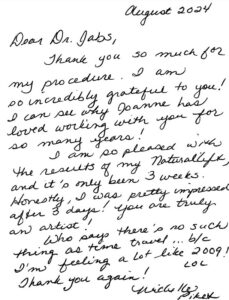 August 2024
Dear Dr. Jabs,
Thank you so much for
my procedure. I am
so incredibly grateful to you!
I can see why Joanne has
loved working with you for
so many years!
I am so pleased with
the results of my Naturallift,
and it's only been 3 weeks.
Honestly, I was pretty impressed
after 3 days! You are truly
an artist!
Who says there's no such
thing as time travel... b/c
I'm feeling a lot like 2009!
LOL
Thank you again!
Michelle